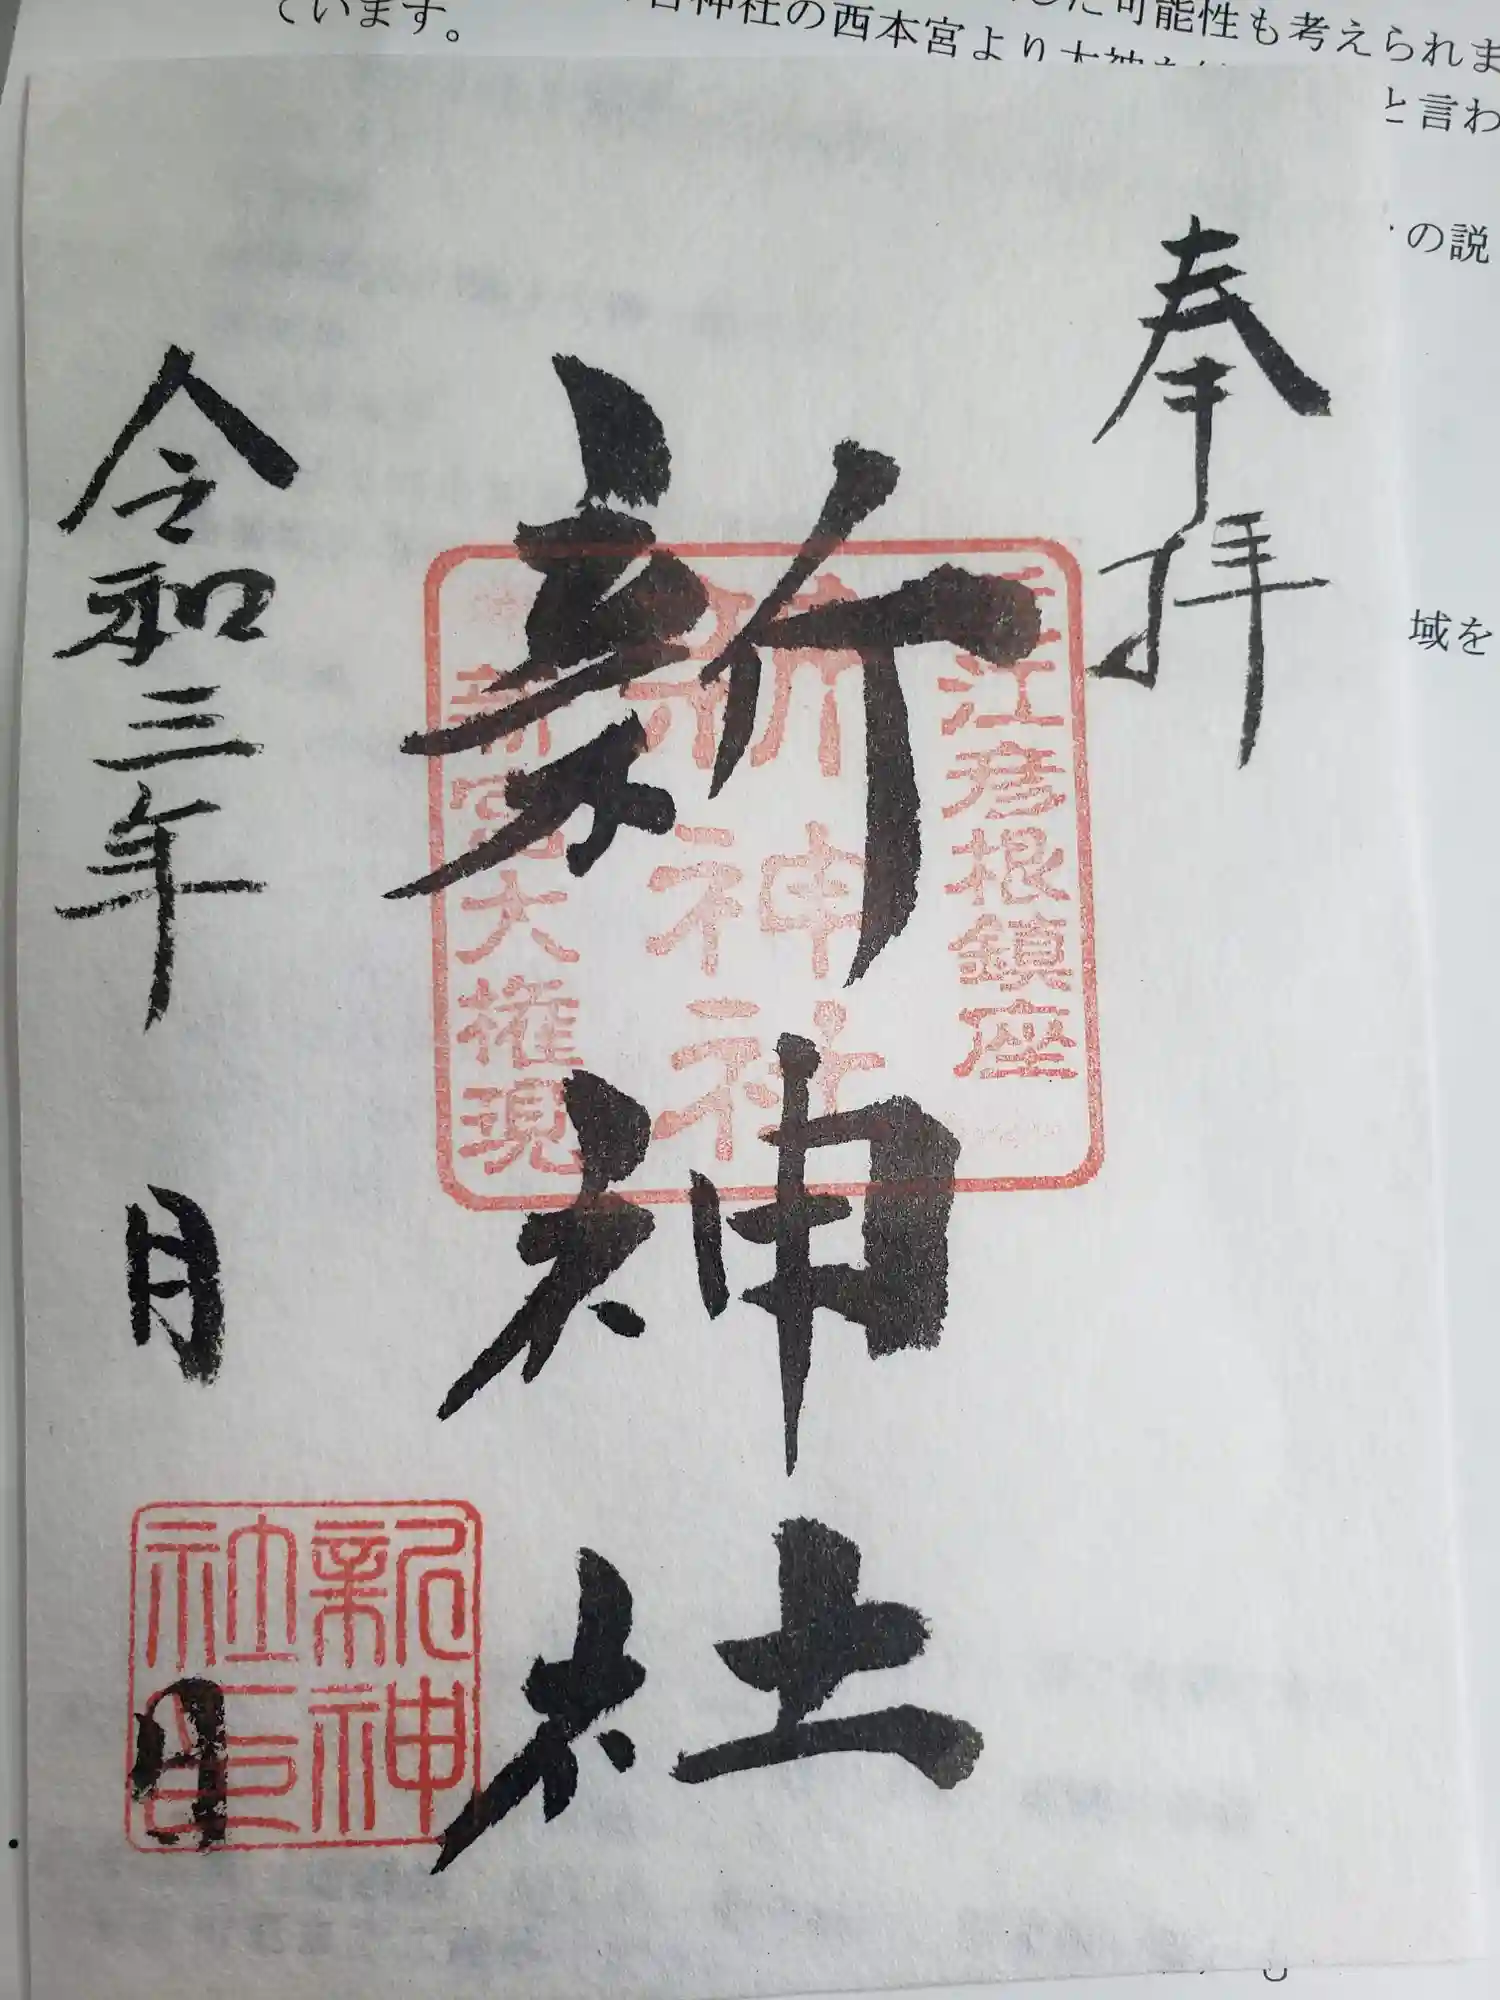 ています。
神社の西本宮より大神を
した可能性も考えられま
と言わ
の説
域を
奉拝
新神社
令和三年 月 日
江彦根鎮座
新神社
新宮大権現
新神
社印